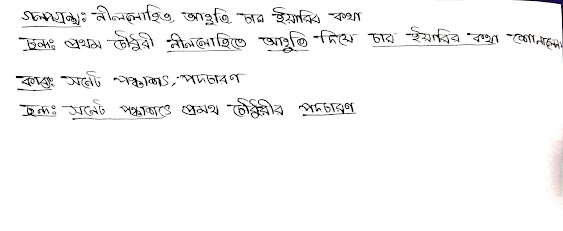 গল্পগ্রন্থঃ নীললোহিত, আহুতি চার ইয়ারির কথা
ছন্দঃ প্রথম চৌধুরী নীললোহিতে আহুতি দিয়ে চার ইয়ারির কথা শোনালেন
কাব্যঃ সনেট পঞ্চাশৎ, পদচারণ
ছন্দঃ সনেট পঞ্চাশতে প্রমথ চৌধুরীর পদচারণ